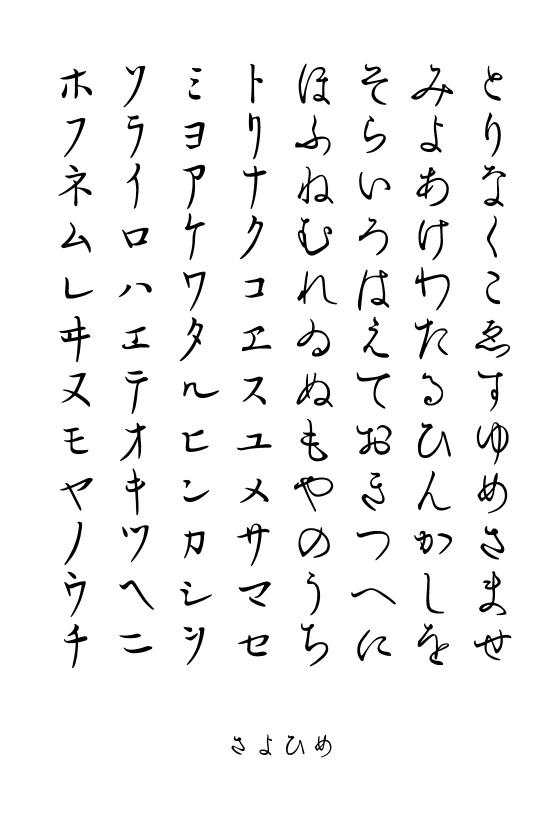 とりなくこゑすゆめさませ
みよあけわたるひんかしを
そらいろはえておきつへに
ほふねむれゐぬもやのうち
トリナクコヱスユメサマセ
ミヨアケワタルヒンカシヲ
ソライロハエテオキツヘニ
ホフネムレヰヌモヤノウチ
さよひめ